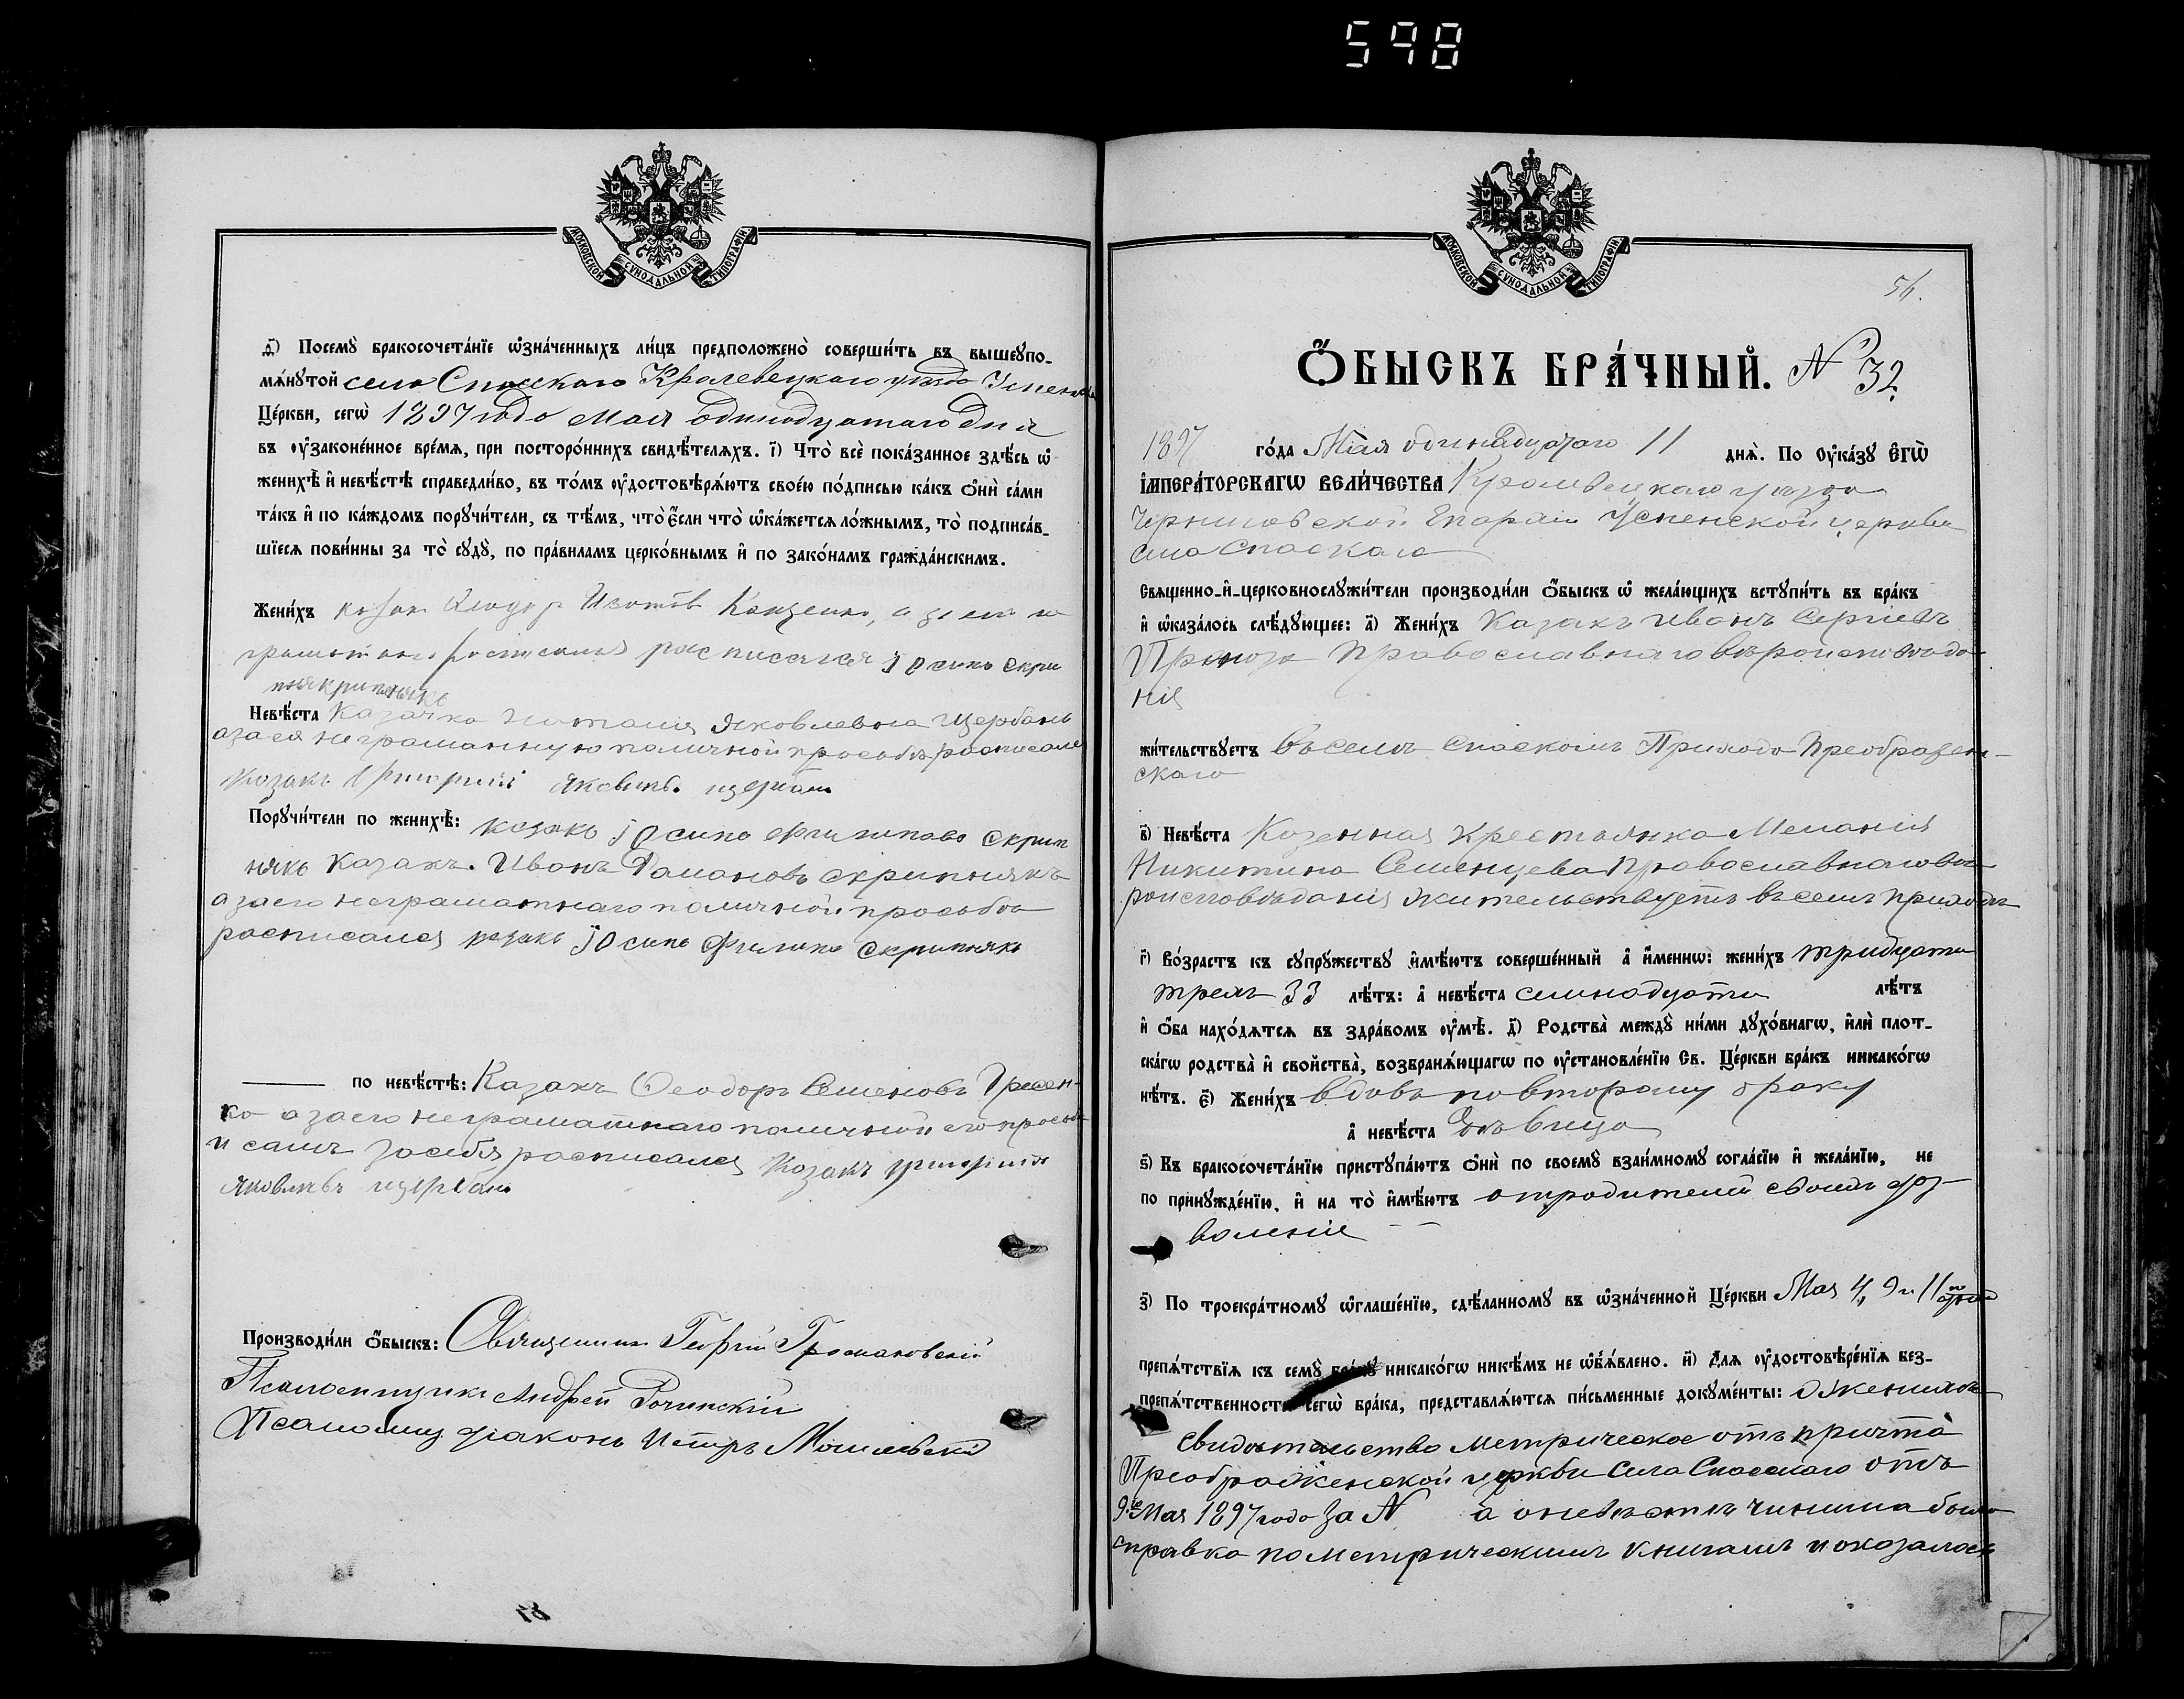 598
МОСКОВСКОЙ СѴНОДАЛЬНОЙ ТИПОГРАФІИ
д҃і) Посемꙋ̀ бракосочета́нїе ѡ҆зна́ченныхъ ли́цъ предположено̀ соверши́ть въ вышеꙋпо-
мѧ́нꙋтой села Спаскаго Кролевецкаго уезда Успенской
Це́ркви, сегѡ̀ 1897 года Мая одинадцатаго дня
въ ᲂу҆законе́нное вре́мѧ, при посторо́ннихъ свидѣ́телѧхъ. і҃) Что̀ всѐ пока́занное здѣ́сь ѡ҆
женихѣ̀ и҆ невѣ́стѣ справедли́во, въ то́мъ ᲂу҆достовѣрѧ́ютъ свое́ю по́дписью ка́къ ѻ҆нѝ са́ми
та́къ и҆ по ка́ждомъ порꙋчи́тели, съ тѣ́мъ, что̀ є҆́сли что̀ ѡ҆ка́жетсѧ ло́жнымъ, то̀ подписа́в-
шїесѧ пови́нны за то̀ сꙋдꙋ̀, по пра́виламъ церко́внымъ и҆ по зако́намъ гражда́нскимъ.
Жени́хъ
росписался Іосипъ Скри
Невѣ́ста Казачка Наталия Яковлевна Щербань
а за ея неграматнную по личной просьбе росписался
Козакъ Григорий Яковлевъ Щербань
Порꙋчи́тели по женихѣ̀: Козакъ Іосипъ Филиповъ Скрип
някъ Казакъ Иванъ Романовъ Скрипнякъ
а за его неграматнаго по личной просьбе
росписался козакъ Іосипъ Филипо Скрипнякъ
по невѣ́стѣ: Казакъ Феодоръ Семеновъ
ко а за его неграматнаго по личной его просьбе
и самъ за себя росписался Козакъ Григорий
Яковлевъ Щербань
Производи́ли ѻ҆́быскъ: Священникъ Георгій Громаковскій
Псаломщикъ Андрей
Псаломщ дяконъ Петръ Могилевскій
МОСКОВСКОЙ СѴНОДАЛЬНОЙ ТИПОГРАФІИ
Ѻ҆́БЫСКЪ БРА́ЧНЫЙ. № 32.
1897 го́да Мая одинадцатаго 11 днѧ̀. По ᲂу҆ка́зꙋ Є҆ГѠ̀
І҆МПЕРА́ТОРСКАГѠ ВЕЛИ́ЧЕСТВА Кролевецкаго уезда
Черниговской Епархии Успенской церкви
села Спаскаго
Сващенно-и҆-церковнослꙋжи́тели производи́ли ѻ҆́быскъ ѡ҆ жела́ющихъ встꙋпи́ть въ бра́къ
и҆ ѡ҆каза́лось слѣ́дꙋющее: а҃) Жени́хъ Казакъ Иванъ Сергиевъ
Православнаго вероисповеда
ния
жи́тельствꙋетъ въ селе Спаскомъ Прихода Преображен-
скаго
в҃) Невѣ́ста Казенная Крестьянка Мелания
Никитина Семенцева Православнаго ве
роисповедания жительствуетъ въ семъ приходе
г҃) Во́зрастъ къ сꙋпрꙋ́жествꙋ и҆мѣ́ютъ соверше́нный а҆ и҆́меннѡ: жени́хъ тридцати
трехъ 33 лѣ́тъ: а҆ невѣ́ста семнадцати лѣ́тъ
и҆ ѻ҆́ба нахо́дѧтсѧ въ здра́вомъ ᲂу҆мѣ̀. д҃) Родства̀ междꙋ̀ ни́ми дꙋхо́внагѡ, и҆лѝ плот-
ска́гѡ родства̀ и҆ сво́йства̀, возбранѧ́ющагѡ по ᲂу҆становле́нїю Св. Це́ркви бра́къ никако́гѡ
нѣ́тъ. є҃) Жени́хъ вдовъ по второму браку
а҆ невѣ́ста Девица
ѕ҃) Къ бракосочета́нїю пристꙋпа́ютъ ѻ҆нѝ по своемꙋ̀ взаи́мномꙋ согла́сїю и҆ жела́нїю, не
по принꙋжде́нїю, и҆ на то̀ и҆мѣ́ютъ от родителей своихъ доз-
воление
з҃) По троекра́тномꙋ ѡ҆глаше́нїю, сдѣ́ланномꙋ въ ѡ҆зна́ченной Це́ркви Мая 4, 9 и 11
препѧ́тствїѧ къ семꙋ̀ бра́кꙋ никако́гѡ никѣ́мъ не ѡ҆б̾ѧ́влено. и҃) Длѧ ᲂу҆достовѣре́нїѧ без-
препѧ́тственности сегѡ̀ бра́ка, представлѧ́ютсѧ пи́сьменные докꙋме́нты: о женихе
свидетельство метрическое отъ причта
Преображенской церкви села Спасскаго отъ
9го Мая 1897 года за № а о невесте чинима была
справка по метрическимъ книгамъ и оказалось